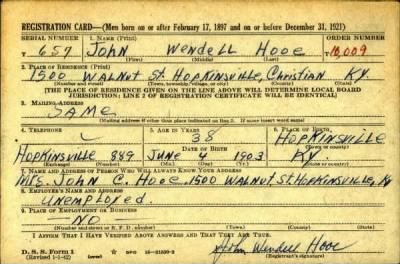 REGISTRATION CARD—(Men born on or after February 17, 1897 and on or before December 31, 1921)
SERIAL NUMBER 1. NAME (Print) ORDER NUMBER
T 657 John Wendell Hooe 10,009
(First) (Middle) (Last)
2. PLACE OF RESIDENCE (Print)
1500 Walnut St. Hopkinsville, Christian Ky.
(Number and street) (Town, township, village, or city) (County) (State)
[THE PLACE OF RESIDENCE GIVEN ON THE LINE ABOVE WILL DETERMINE LOCAL BOARD
JURISDICTION; LINE 2 OF REGISTRATION CERTIFICATE WILL BE IDENTICAL]
3. MAILING ADDRESS
SAME
[Mailing address if other than place indicated on line 2. If same insert word same]
4. TELEPHONE 5. AGE IN YEARS 6. PLACE OF BIRTH
38 Hopkinsville
DATE OF BIRTH (Town or county)
Hopkinsville 889 June 4 1903 Ky
(Exchange) (Number) (Mo.) (Day) (Yr.) (State or country)
7. NAME AND ADDRESS OF PERSON WHO WILL ALWAYS KNOW YOUR ADDRESS
Mrs. John C. Hooe. 1500 Walnut St. Hopkinsville, Ky
8. EMPLOYER'S NAME AND ADDRESS
Unemployed.
9. PLACE OF EMPLOYMENT OR BUSINESS
—NO
(Number and street or R. F. D. number) (Town) (County) (State)
I AFFIRM THAT I HAVE VERIFIED ABOVE ANSWERS AND THAT THEY ARE TRUE.
D. S. S. Form 1
(Revised 1-1-42) (over) John Wendell Hooe
(Registrant's signature)